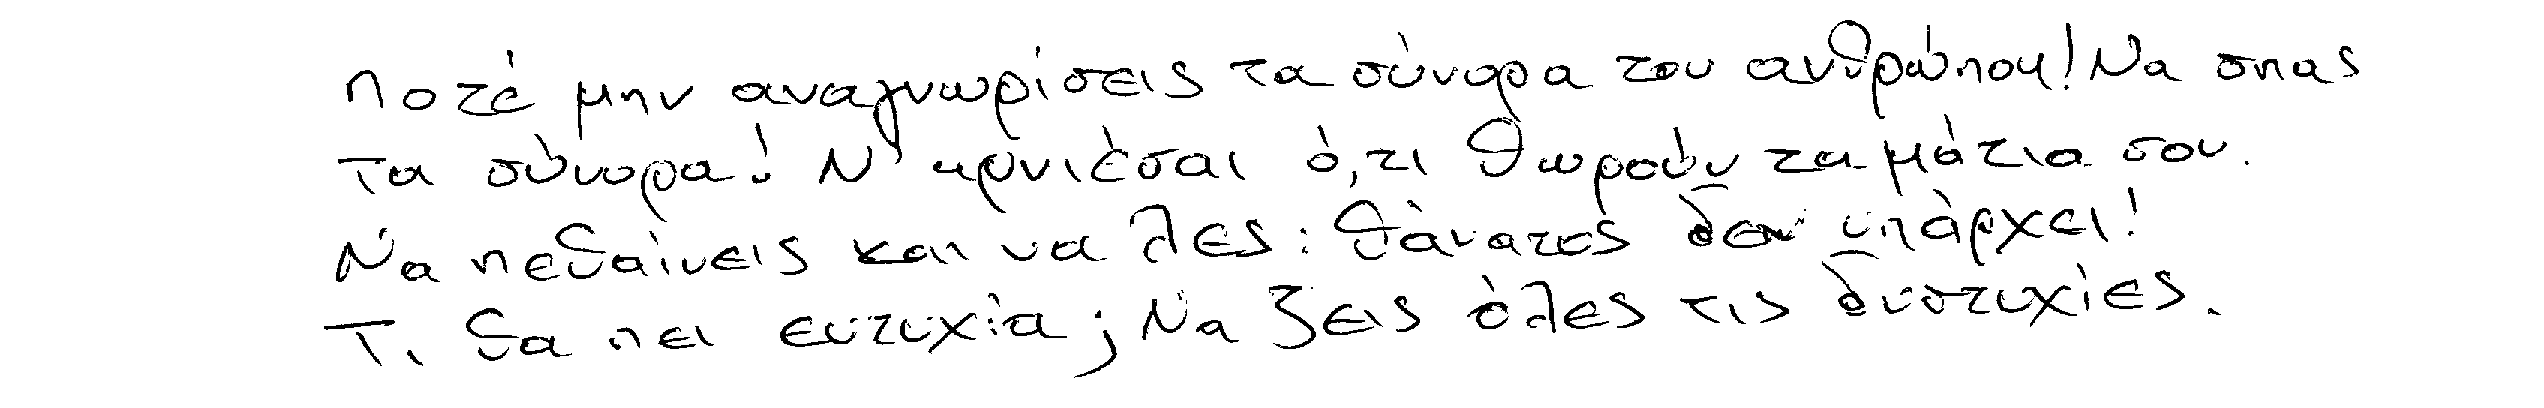 Ποτέ μην αναγνωρίσεις τα σύνορα του ανθρώπου! Να σπας
τα σύνορα! Ν' αρνιέσαι ό,τι θωρούν τα μάτια σου.
Να πεθαίνεις και να λες: θάνατος δεν υπάρχει!
Τι θα πει ευτυχία; Να ζεις όλες τις δυστυχίες.